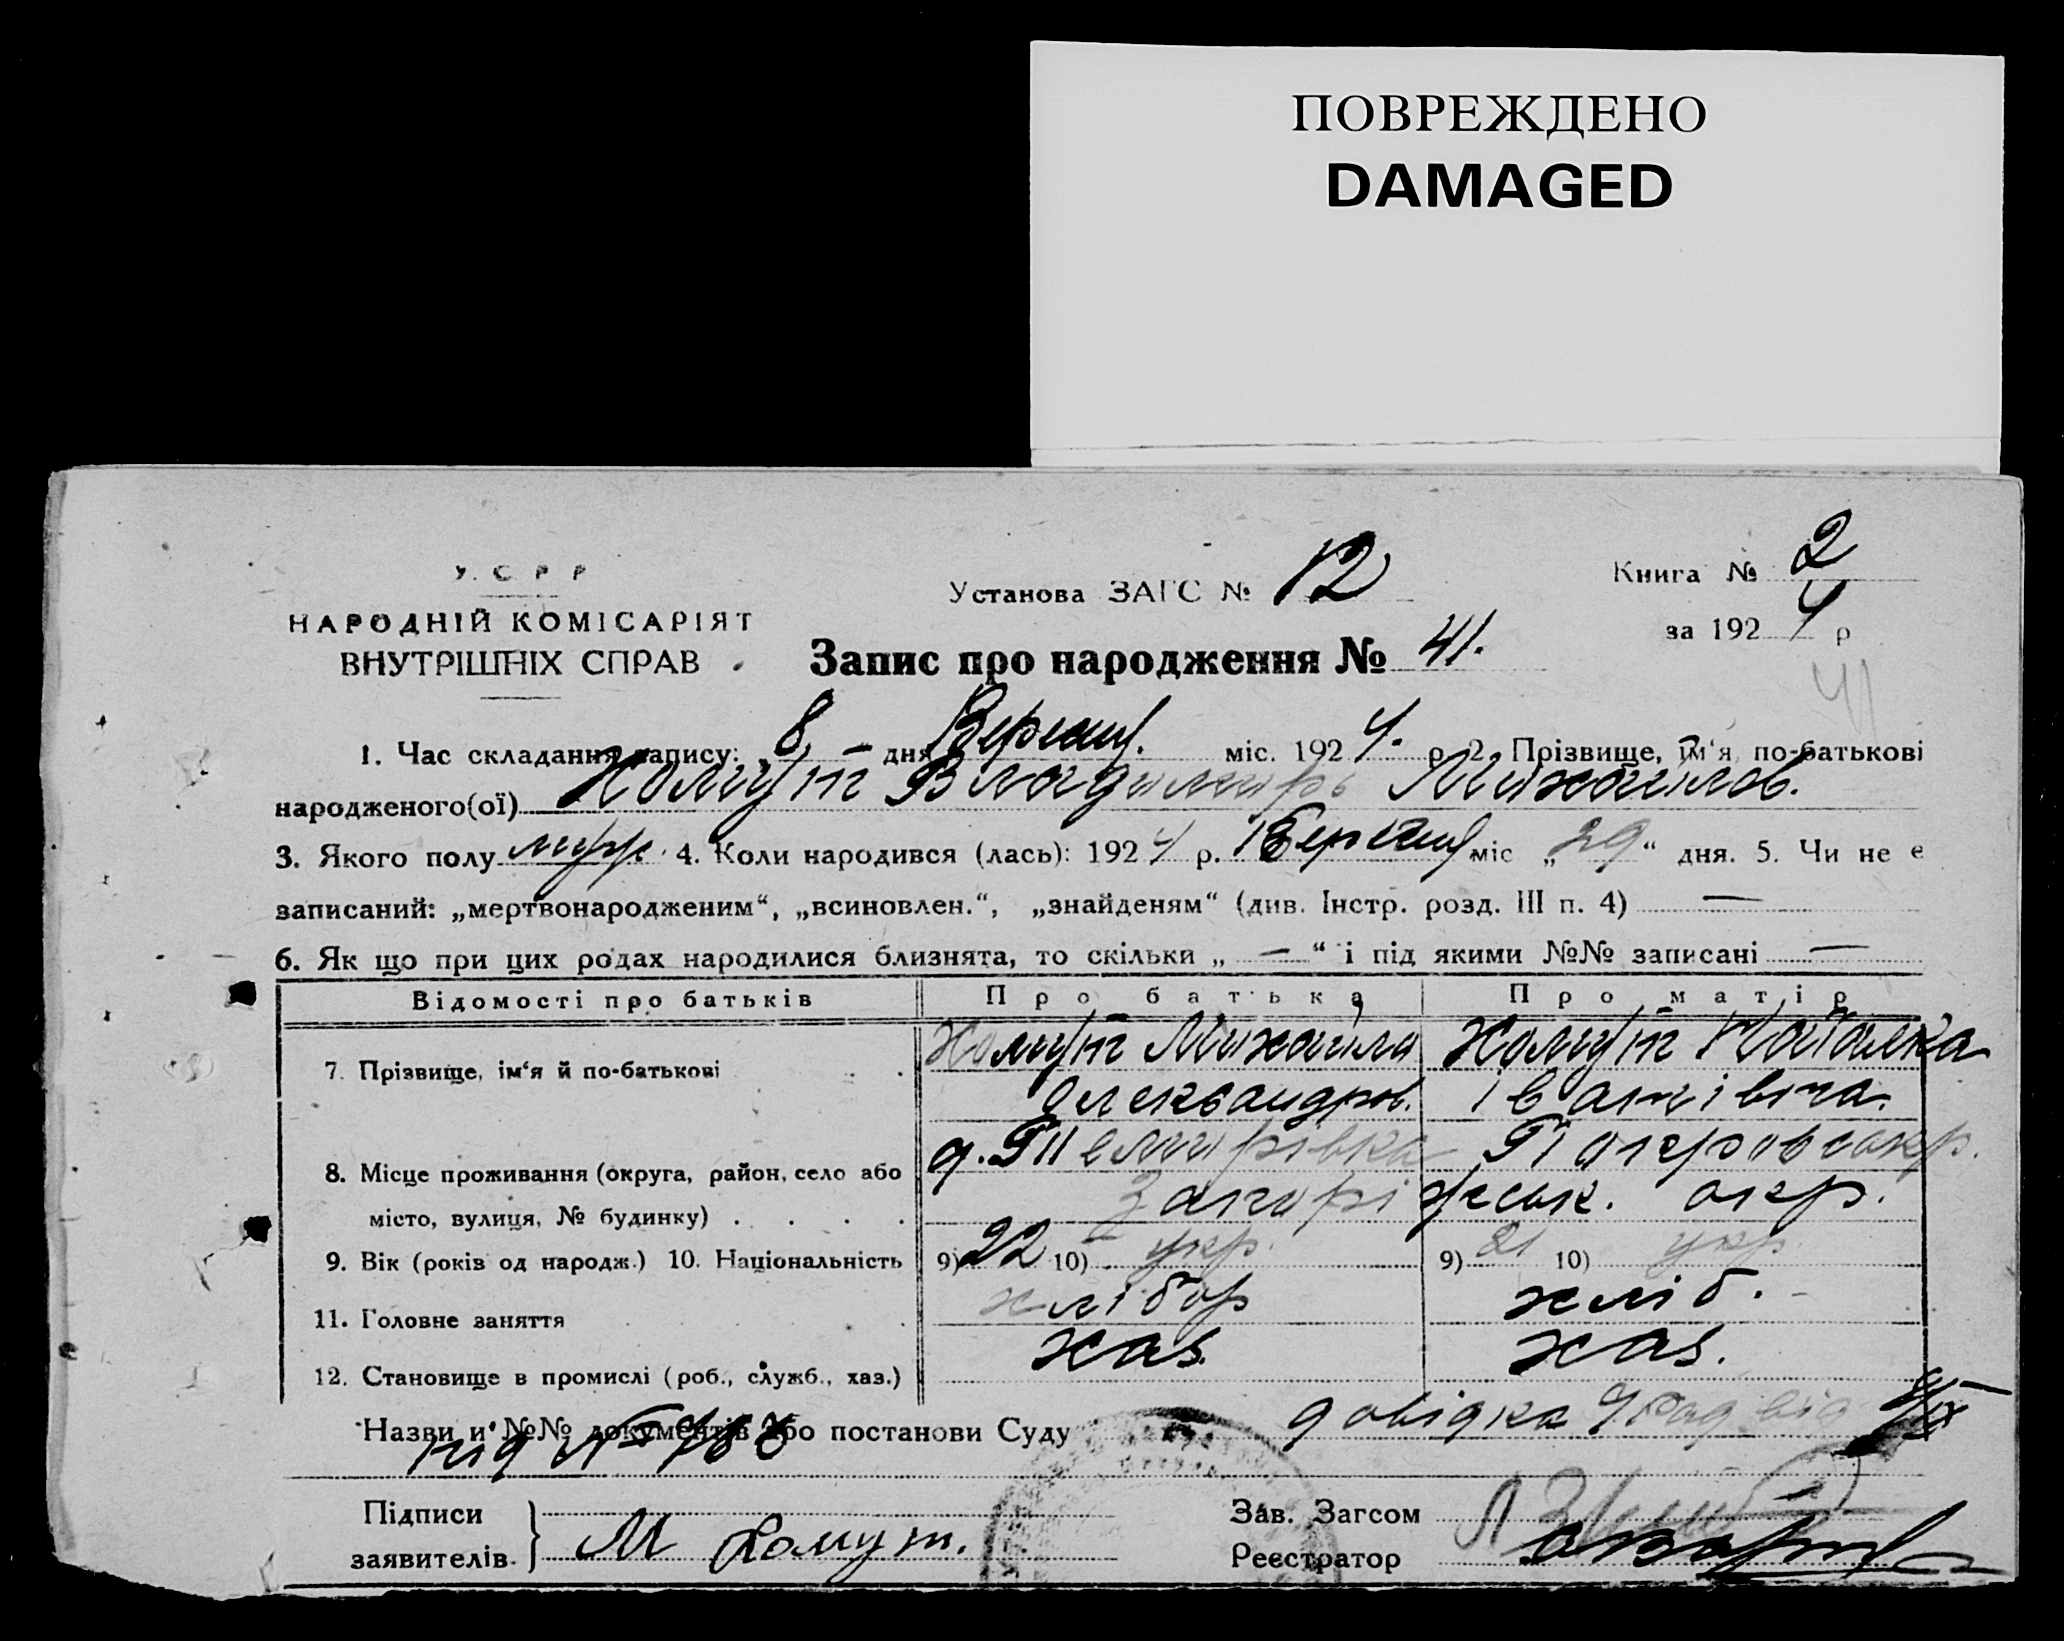 ПОВРЕЖДЕНО
DAMAGED
У. С. Р. Р.
НАРОДНІЙ КОМІСАРІЯТ
ВНУТРІШНІХ СПРАВ
Установа ЗАГС № 12
Книга № 2
за 1924 р
Запис про народження № 41.
41
1. Час складання запису: 8 дня Вересня. міс. 1924. р. 2. Прізвище, ім'я, по-батькові
народженого(ої) Хомут Владимиръ Михайлов.
3. Якого полу муж. 4. Коли народився (лась): 1924 р. міс „29“ дня. 5. Чи не е
записаний: „мертвонародженим“, „всиновлен.“, „знайденям“ (див. Інстр. розд. III п. 4) —
6. Як що при цих родах народилися близнята, то скільки „—“ і під якими №№ записані —
Відомості про батьків Про батька Про матір
7. Прізвище, ім'я й по-батькові Хомут Михайла Хомут Наталка
Олександров. Іванівна.
8. Місце проживання (округа, район, село або
місто, вулиця, № будинку) Запоріжськ. окр.
9. Вік (років од народж.) 10. Національність 9) 22 10) укр. 9) 21 10) укр.
11. Головне заняття хлібор хліб.
12. Становище в промислі (роб., служб., хаз.) хаз. хаз.
Назви и №№ документів або постанови Суду довідка від 8/IX
під № 786
Підписи
заявителів М Хомут.
Зав. Загсом
Реєстратор